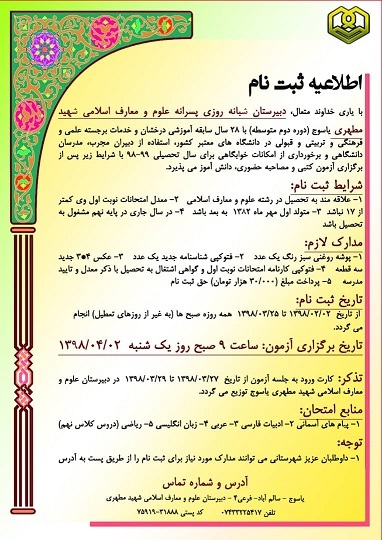 اطلاعیه ثبت نام
با یاری خداوند متعال، دبیرستان شبانه روزی پسرانه علوم و معارف اسلامی شهید
مطهری یاسوج (دوره دوم متوسطه) با ۲۸ سال سابقه آموزشی درخشان و خدمات برجسته علمی و
فرهنگی و تربیتی و قبولی در دانشگاه های معتبر کشور، استفاده از دبیران مجرب، مدرسان
دانشگاهی و برخورداری از امکانات خوابگاهی برای سال تحصیلی ۹۹-۹۸ با شرایط زیر پس از
برگزاری آزمون کتبی و مصاحبه حضوری، دانش آموز می پذیرد.
شرایط ثبت نام:
۱- علاقه مند به تحصیل در رشته علوم و معارف اسلامی ۲- معدل امتحانات نوبت اول وی کمتر
از ۱۷ نباشد ۳- متولد اول مهر ماه ۱۳۸۲ به بعد باشد ۴- در سال جاری در پایه نهم مشغول به
تحصیل باشد
مدارک لازم:
۱- پوشه روغنی سبز رنگ یک عدد ۲- فتوکپی شناسنامه جدید یک عدد ۳- عکس ۴*۳ جدید
سه قطعه ۴- فتوکپی کارنامه امتحانات نوبت اول و گواهی اشتغال به تحصیل با ذکر معدل و تایید
مدرسه ۵- پرداخت مبلغ (۳۰/۰۰۰ هزار تومان) حق ثبت نام
تاریخ ثبت نام:
از تاریخ ۱۳۹۸/۰۲/۰۲ تا ۱۳۹۸/۰۳/۲۵ همه روزه صبح ها (به غیر از روزهای تعطیل) انجام
می گردد.
تاریخ برگزاری آزمون: ساعت ۹ صبح روز یک شنبه ۱۳۹۸/۰۴/۰۲
تذکر: کارت ورود به جلسه آزمون از تاریخ ۱۳۹۸/۰۳/۲۷ تا ۱۳۹۸/۰۳/۲۹ در دبیرستان علوم و
معارف اسلامی شهید مطهری یاسوج توزیع می گردد.
منابع امتحان:
۱- پیام های آسمانی ۲- ادبیات فارسی ۳- عربی ۴- زبان انگلیسی ۵- ریاضی (دروس کلاس نهم)
توجه:
۱- داوطلبان عزیز شهرستانی می توانند مدارک مورد نیاز برای ثبت نام را از طریق پست به آدرس
آدرس و شماره تماس
یاسوج - سالم آباد- فرعی۴ - دبیرستان علوم و معارف اسلامی شهید مطهری
تلفن ۰۷۴۳۳۲۲۵۴۱۷ کد پستی ۳۱۸۸۸-۷۵۹۱۹